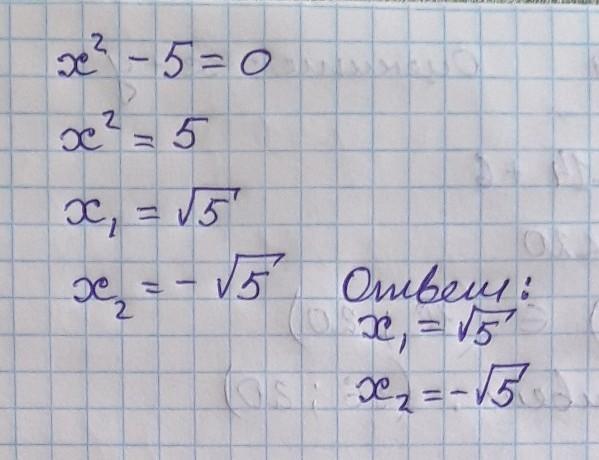 x² - 5 = 0
x² = 5
x₁ = √5
x₂ = - √5
Ответ:
x₁ = √5
x₂ = -√5